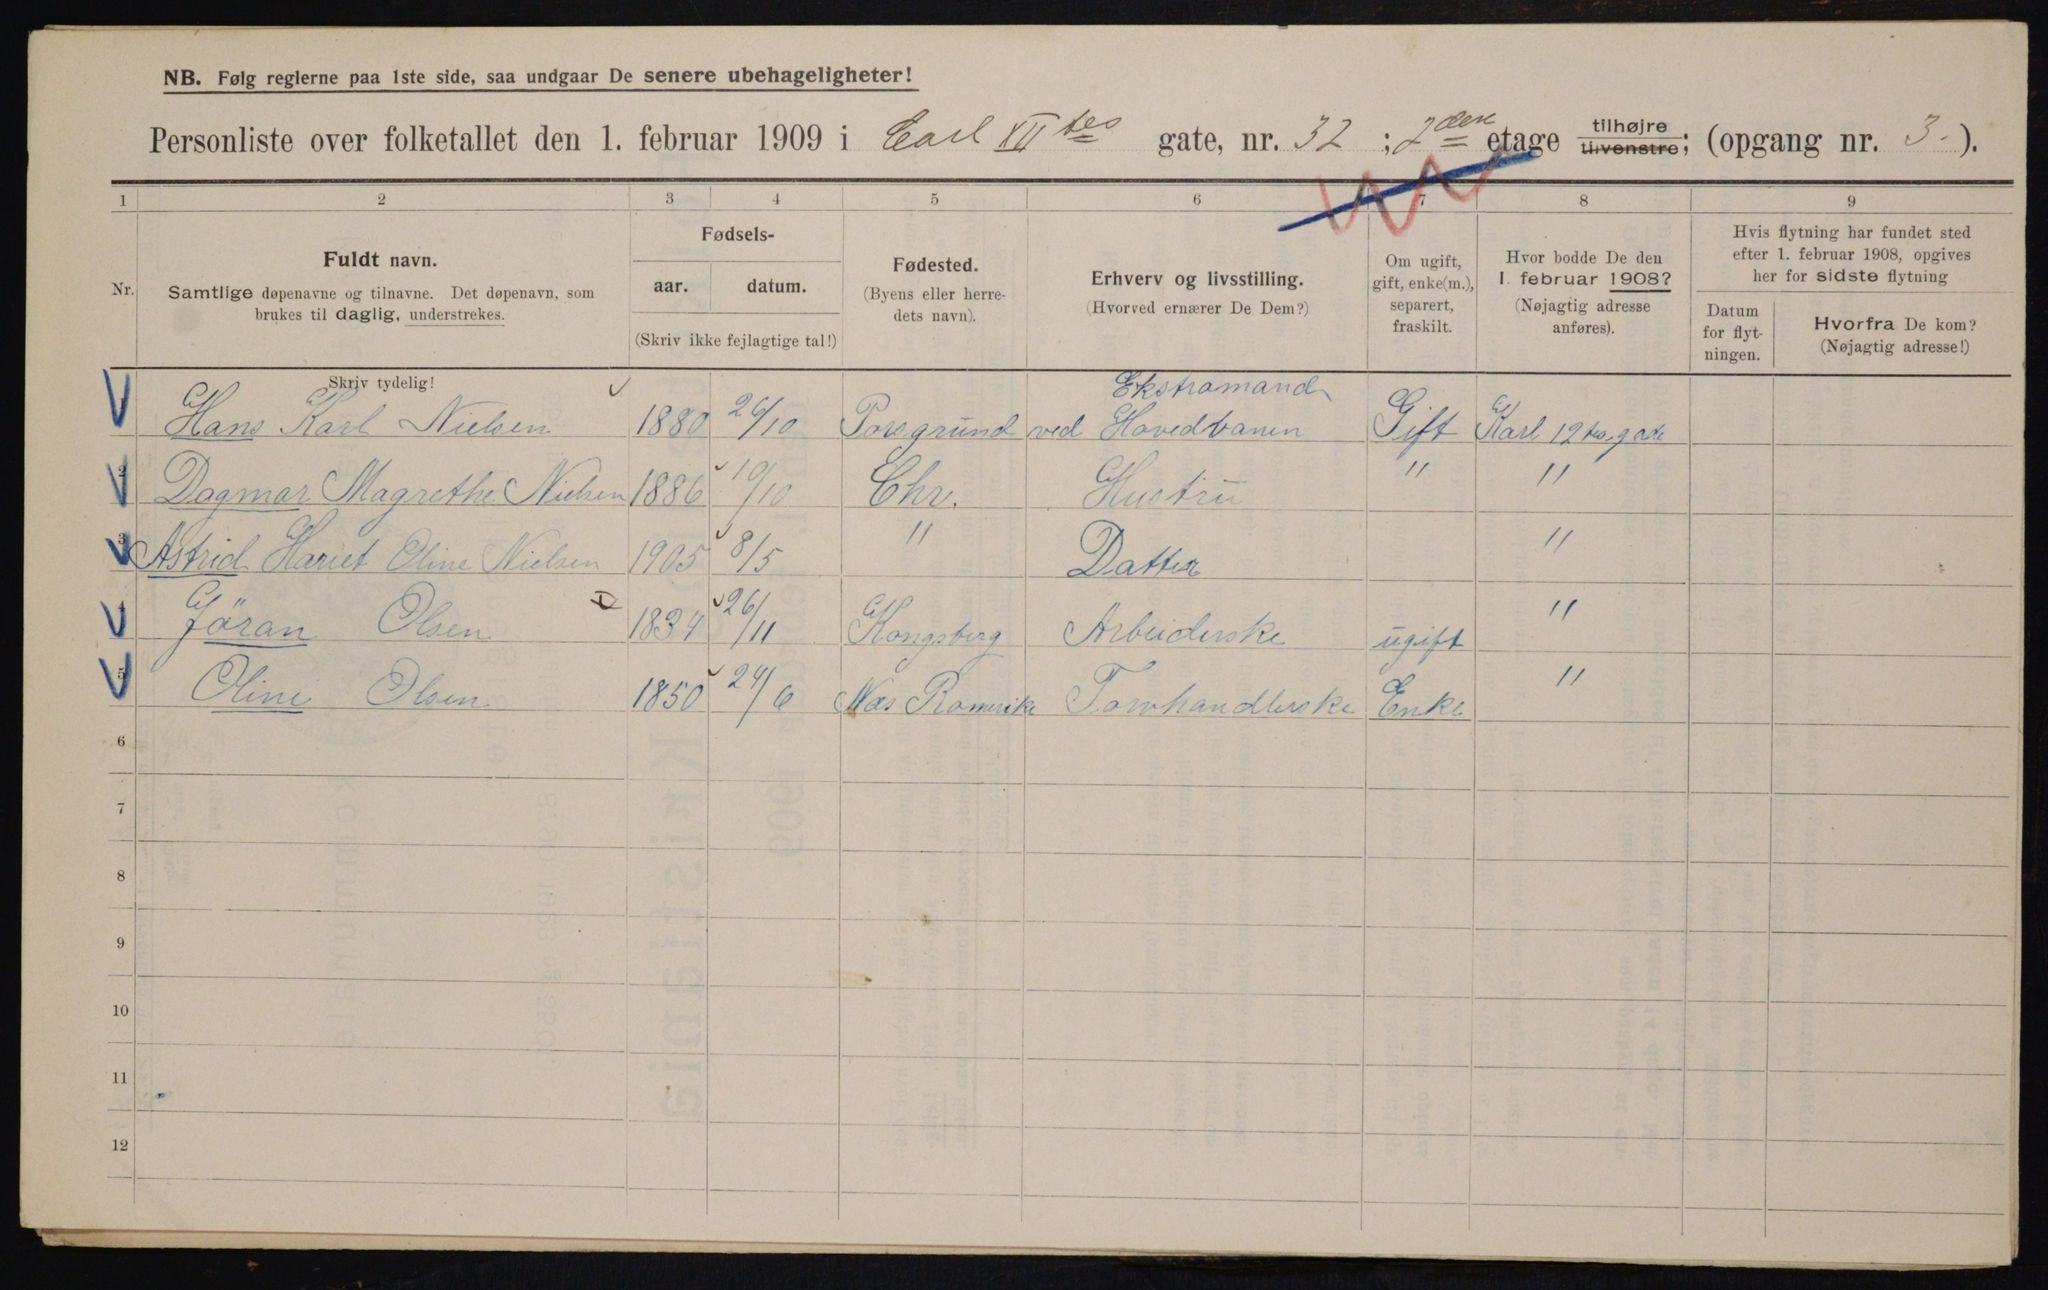 NB. Følg reglerne paa 1ste side, saa undgaar De senere ubehageligheter!
Personliste over folketallet den 1. februar 1909 i Carl XIItes gate, nr. 32 ; 2den etage tilhøjre tilvenstre; (opgang nr. 3.).
1 2 3 4 5 6 7 8 9
Nr.
Fuldt navn.
Samtlige døpenavne og tilnavne. Det døpenavn, som
brukes til daglig, understrekes.
Skriv tydelig!
Fødsels-
aar. datum.
(Skriv ikke fejlagtige tal!)
Fødested.
(Byens eller herre-
dets navn).
Erhverv og livsstilling.
(Hvorved ernærer De Dem?)
Om ugift,
gift, enke(m.),
separert,
fraskilt.
Hvor bodde De den
1. februar 1908?
(Nøjagtig adresse
anføres).
Hvis flytning har fundet sted
efter 1. februar 1908, opgives
her for sidste flytning
Datum
for flyt-
ningen.
Hvorfra De kom?
(Nøjagtig adresse!)
Ekstramand
1 Hans Karl Nielsen 1880 26/10 Porsgrund ved Hovedbanen Gift Karl 12tes gade
2 Dagmar Magrethe Nielsen 1886 10/10 Chr. Hustru " "
3 Astrid Hariet Oline Nielsen 1905 8/5 " Datter "
4 Jöran Olsen 1834 26/11 Kongsberg Arbeiderske ugift "
5 Oline Olsen 1850 24/6 Næs Romerike Torvhandlerske Enke "
6
7
8
9
10
11
12